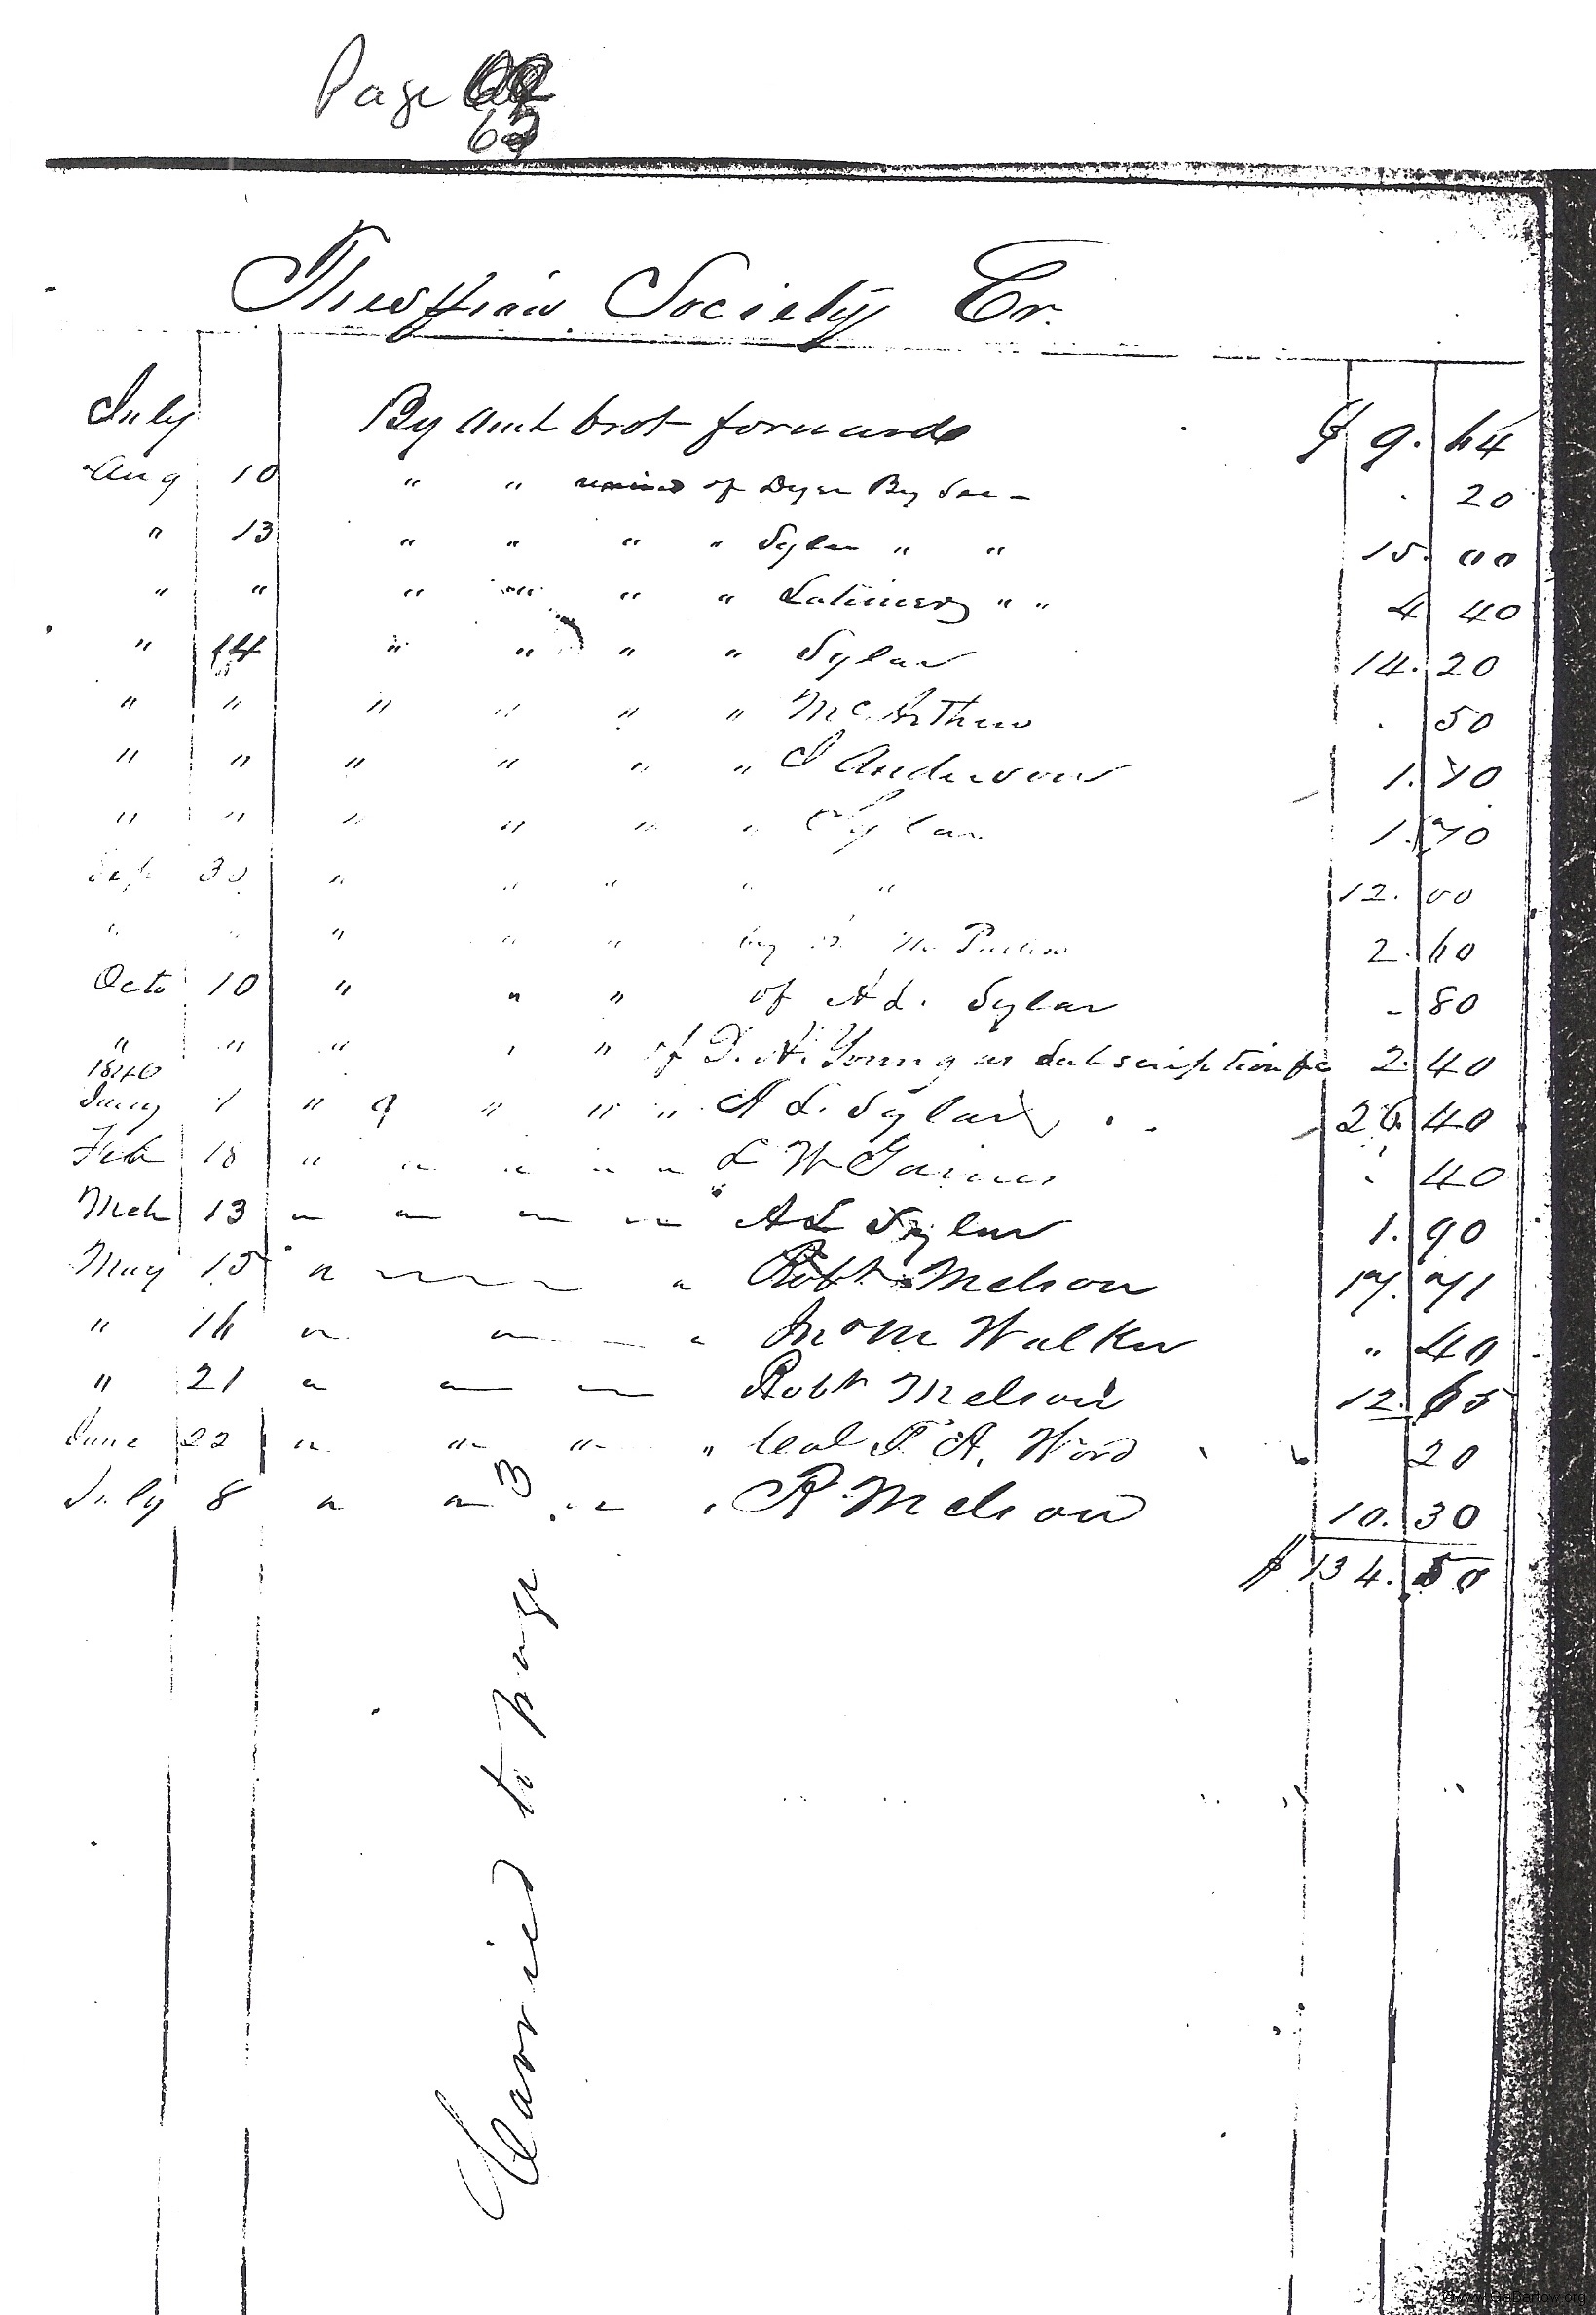 Page
62
Thespian Society Cr.
July By Amt brot forward $ 9. 64
Aug 10 " " of Dyer By Sec - . 20
" 13 " " " " Sylar " " 15. 00
" " " " " " Latimer " " 4 40
" 14 " " " " Sylar 14. 20
" " " " " " McArthur - 50
" " " " " " J Anderson 1. 70
" " " " " " Sylar 1. 70
Sep 30 " " " " " 12. 00
" " " " " by 2. 60
Octo 10 " " " of A L. Sylar - 80
" " " " " of D. H. Young on Subscription 2. 40
1840
Jany 1 " " " " A L. Sylar 26. 40
Feb 18 " " " " " L W Gaines . 40
Mch 13 " " " " A L Sylar 1. 90
May 15 " " Robt Melson 17. 71
" 16 " " " Jno M Walker " 40
" 21 " " " Robt Melson 12. 65
June 22 " " " " Col T. A. Word 20
July 8 " " " " R Melson 10. 30
$ 134. 50
Carried to page 3